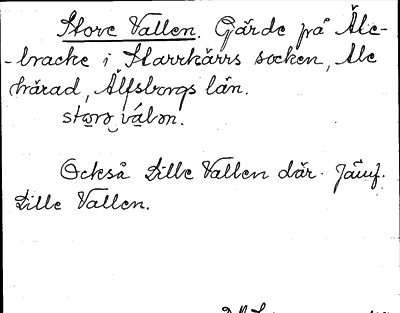 Store Vallen. Gärde på Äle-
-bracke i Starrkärrs socken, Ale
härad, Älfsborgs län.
storo válon.
Också Lille Vallen där. Jämf.
Lille Vallen.